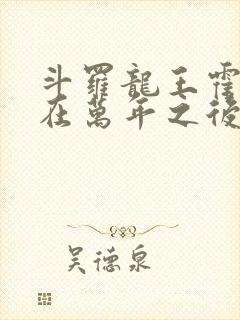 斗羅龍王霍
在萬年之後
吳德泉